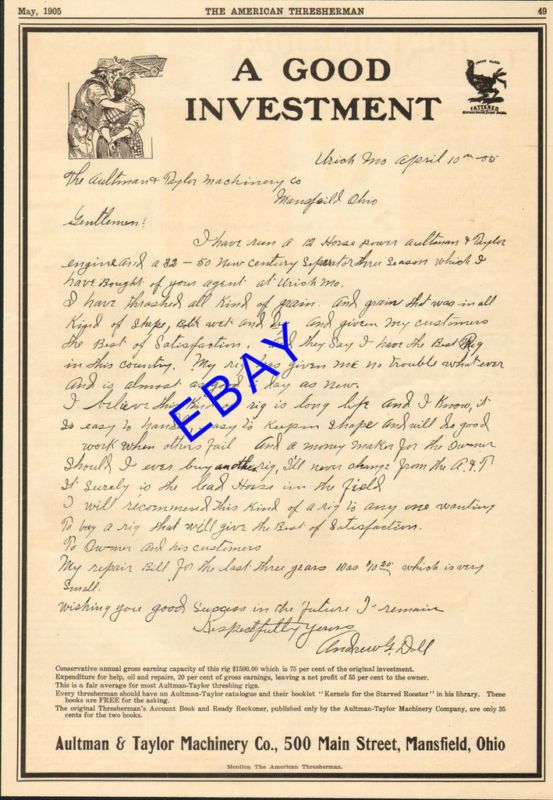 May, 1905
THE AMERICAN THRESHERMAN
49
A GOOD
INVESTMENT
TRADE MARK
FATTENED
Urich Mo April 10th - 05
The Aultman & Taylor Machinery Co
Mansfeild Ohio
Gentlemen:
I have run a 12 Horse power Aultman & Taylor
engine and a 32 - 50 New Century Seperator three Season which I
have Bought of your agent at Urich Mo.
I have thrashed all Kind of grain. And grain that was in all
Kind of Shape, Both wet and dry And given my customers
the Best of Satisfaction. And they Say I have the Best Rig
in this country. My rig has given me no trouble what ever
And is almost as good to day as new.
I believe this Kind rig is long life and I Know, it
is easy to handle, easy to Keep in Shape and will do good
work when others fail And a money maker for the Owner
Should I ever buy another rig, I'll never change from the A. & T
It Surely is the lead Horse in the field
I will recommend this Kind of a rig to any one wanting
To buy a rig that will give the Best of Satisfaction.
To Owner and his customers
My repair Bill for the last three years was which is very
Small.
Wishing you good Success in the future I remain
Respectfully Yours
Andrew G. Doll
EBAY
Conservative annual gross earning capacity of this rig $1500.00 which is 75 per cent of the original investment.
Expenditure for help, oil and repairs, 20 per cent of gross earnings, leaving a net profit of 55 per cent to the owner.
This is a fair average for most Aultman-Taylor threshing rigs.
Every thresherman should have an Aultman-Taylor catalogue and their booklet "Kernels for the Starved Rooster" in his library. These
books are FREE for the asking.
The original Thresherman's Account Book and Ready Reckoner, published only by the Aultman-Taylor Machinery Company, are only 35
cents for the two books.
Aultman & Taylor Machinery Co., 500 Main Street, Mansfield, Ohio
Mention The American Thresherman.